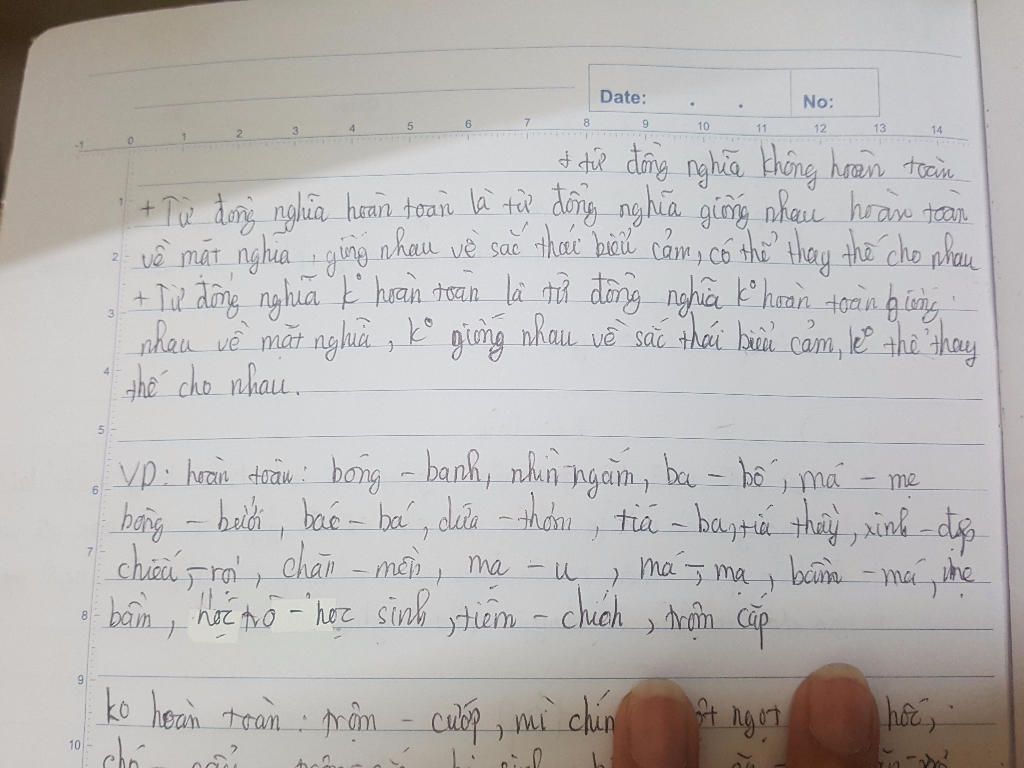 Date: . . No:
-1 0 1 2 3 4 5 6 7 8 9 10 11 12 13 14
+ từ đồng nghĩa không hoàn toàn
1 + Từ đồng nghĩa hoàn toàn là từ đồng nghĩa giống nhau hoàn toàn
2 về mặt nghĩa, giống nhau về sắc thái biểu cảm, có thể thay thế cho nhau
+ Từ đồng nghĩa k° hoàn toàn là từ đồng nghĩa k° hoàn toàn giống
3 nhau về mặt nghĩa, k° giống nhau về sắc thái biểu cảm, k° thể thay
4 thế cho nhau.
5
6 VD: hoàn toàn: bóng - banh, nhìn - ngắm, ba - bố, má - mẹ
bòng - bưởi, bác - bá, dứa - thơm, tía - ba, tía thầy, xinh - đẹp
7 chiếu, - rọi, chăn - mền, mạ - u, má, - mạ, bầm - má, mẹ
8 bầm, học trò - học sinh, tiêm - chích, trộm cắp
9 ko hoàn toàn: trộm - cướp, mì ngọt
10